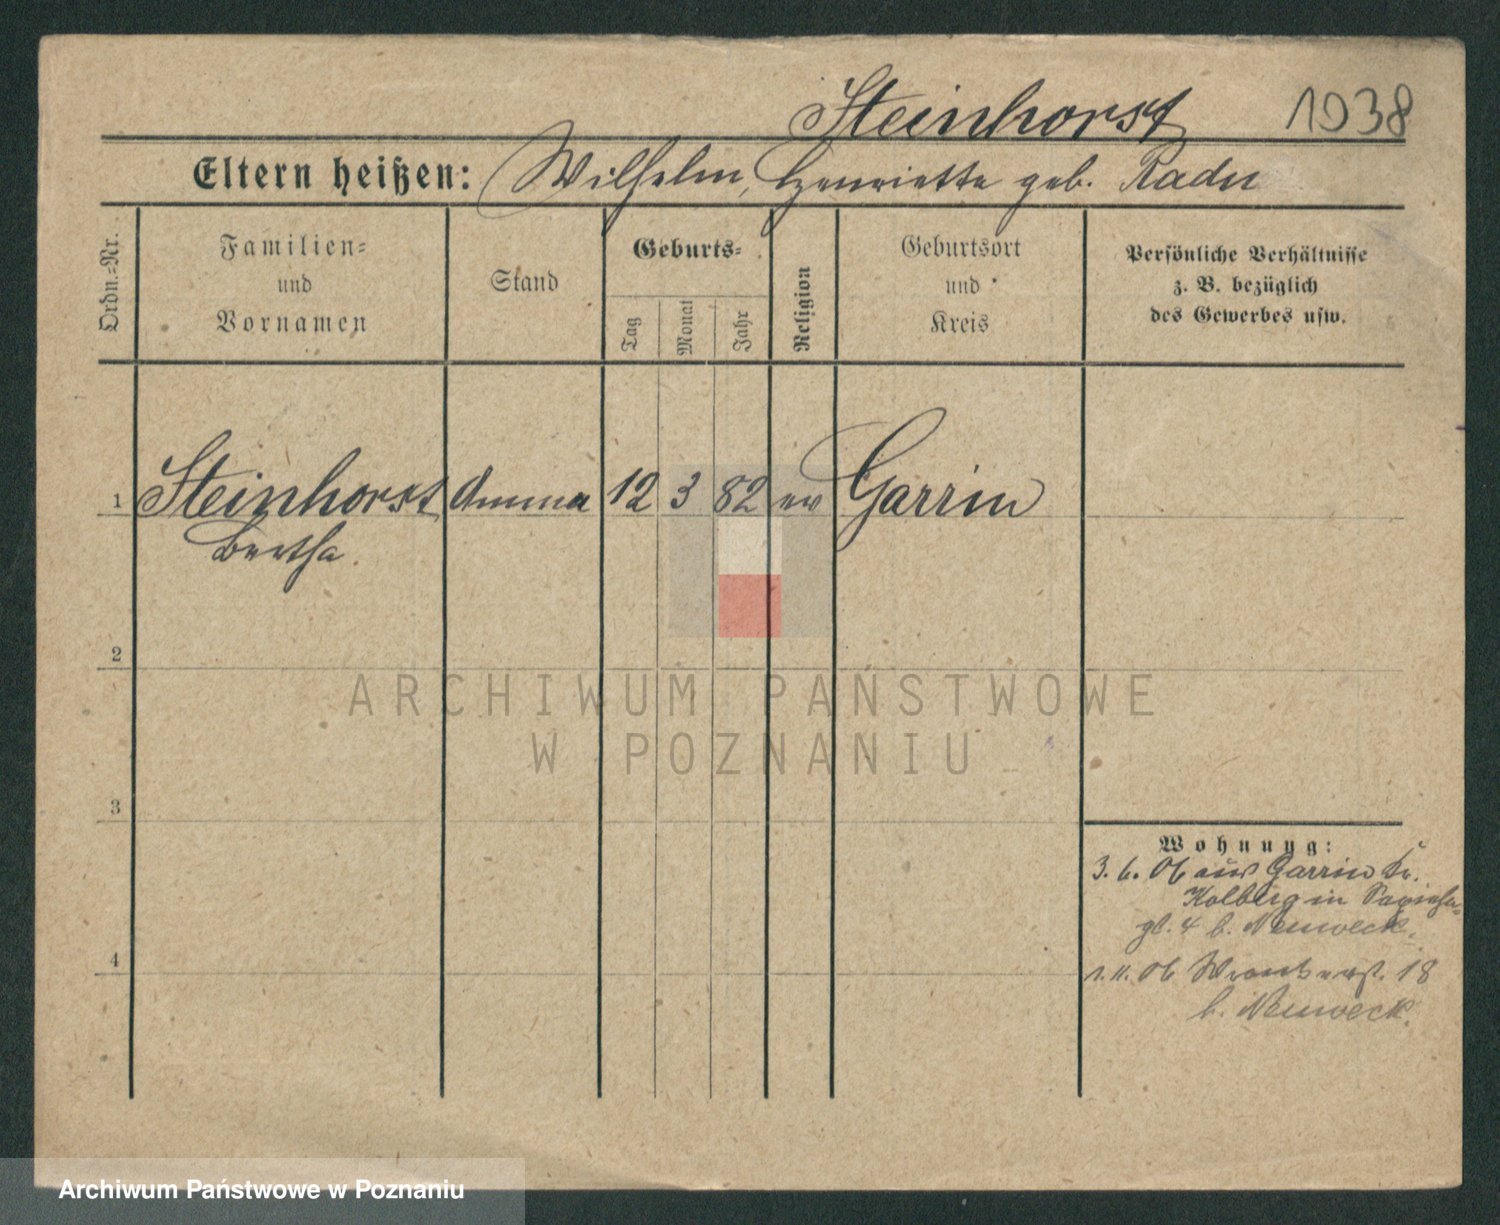 Steinhorst 1938
Eltern heißen: Wilhelm, Henriette geb. Radu
Ordn.=Nr.
Familien=
und
Vornamen
Stand
Geburts=
Tag
Monat
Jahr
Religion
Geburtsort
und
Kreis
Persönliche Verhältnisse
z. B. bezüglich
des Gewerbes usw.
1 Steinhorst Amma 12 3 82 ev Garrin
Bertha.
2
3
4
Wohnung:
3. 6. 06 aus Garrin Kr.
Kolberg in Sapieha=
pl. 4 b. Neuweck.
1. 11. 06 Wronkerst. 18
b. Neuweck.
ARCHIWUM PAŃSTWOWE
W POZNANIU
Archiwum Państwowe w Poznaniu